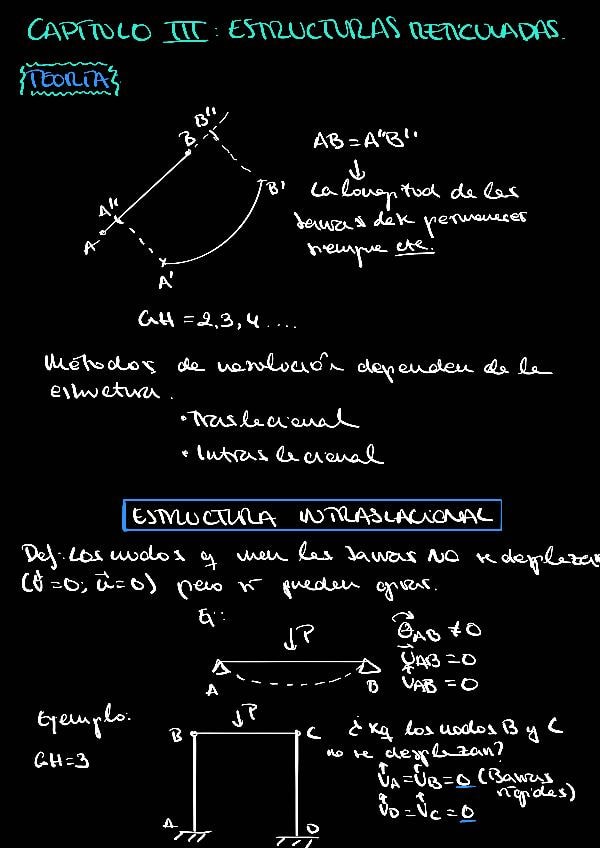 CAPÍTULO III: ESTRUCTURAS RETICULADAS.
TEORÍA
B''
B
AB = A''B''
B'
La longitud de las
A''
barras debe permanecer
A
siempre cte.
A'
GH = 2,3,4....
Métodos de resolución dependen de la
estructura.
• Traslacional
• Intraslacional
ESTRUCTURA INTRASLACIONAL
Def: Los nudos q unen las barras NO se desplazan
(v=0; u=0) pero sí pueden girar.
Ej:
P
θAB ≠ 0
UAB = 0
VAB = 0
A
B
Ejemplo:
P
GH=3
B
C
¿xq los nudos B y C
no se desplazan?
VA = VB = 0 (Barras
rígidas)
VD = VC = 0
A
D